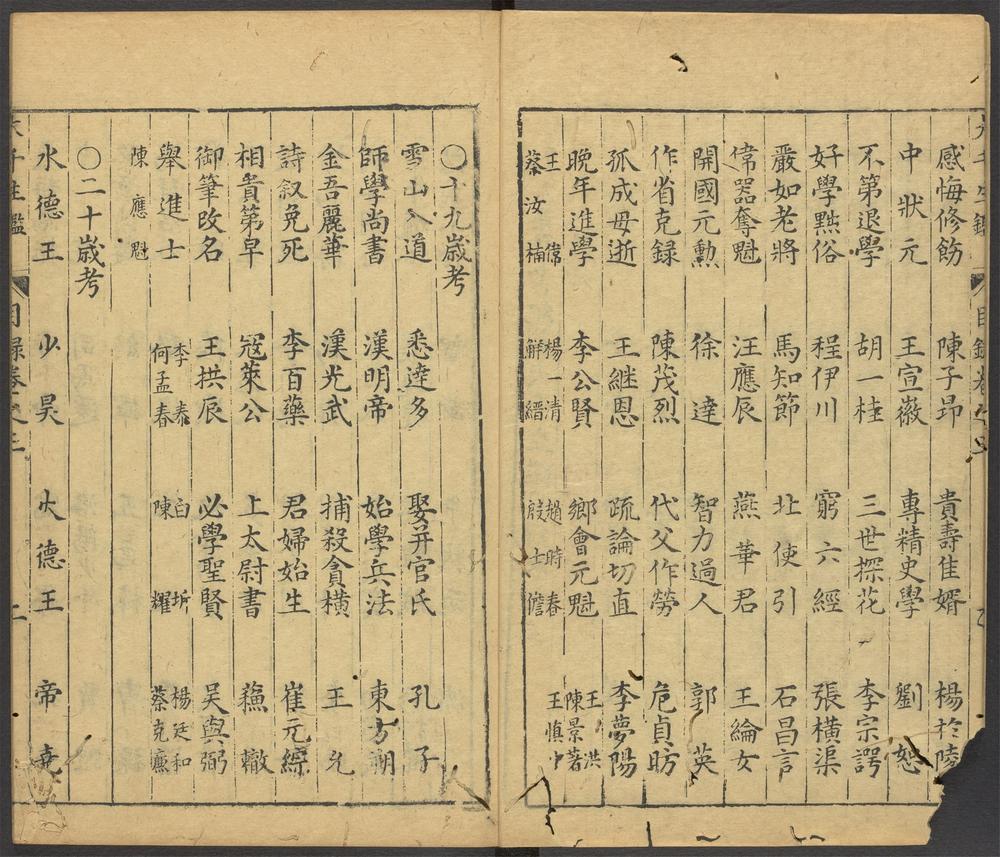 感悔修飭　陳子昻　貴壽隹婿　楊於陵
中狀元　王宣徽　專精史學　劉恕
不第退學　胡一桂　三世探花　李宗諤
好學黠俗　程伊川　窮六經　張橫渠
嚴如老將　馬知節　北使引　石昌言
偉器奪魁　汪應辰　燕華君　王綸女
開國元勲　徐達　智力過人　郭英
作省克録　陳茂烈　代父作勞　危貞昉
孤成母逝　王継恩　疏論切直　李夢陽
晚年進學　李公賢　鄉會元魁　王洪　陳景著　王慎中
王偉　楊一清　趙時春
蔡汝楠　解縉　殷士儋
〇十九歲考
雪山入道　悉達多　娶幷官氏　孔子
師學尚書　漢明帝　始學兵法　東方朔
金吾麗華　漢光武　捕殺貪橫　王允
詩叙免死　李百藥　君婦始生　崔元綜
相貴第早　寇萊公　上太尉書　蘇轍
御筆改名　王拱辰　必學聖賢　吳與弼
舉進士　李泰　何孟春　白圻　陳耀　楊廷和　蔡克廉
陳應魁
〇二十歲考
水德王　少昊　火德王　帝堯
目録卷之三